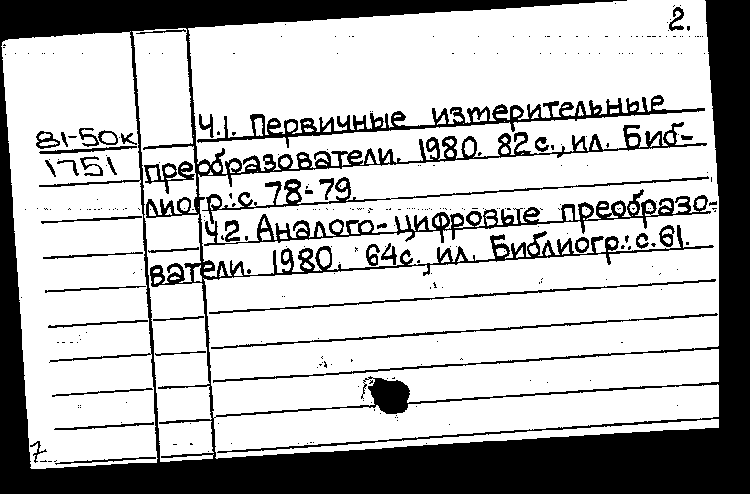 2.
81-50к
1751
Ч.1. Первичные измерительные
преобразователи. 1980. 82с., ил. Биб-
лиогр.: с. 78-79.
Ч.2. Аналого-цифровые преобразо-
ватели. 1980. 64с., ил. Библиогр.: с. 61.
7